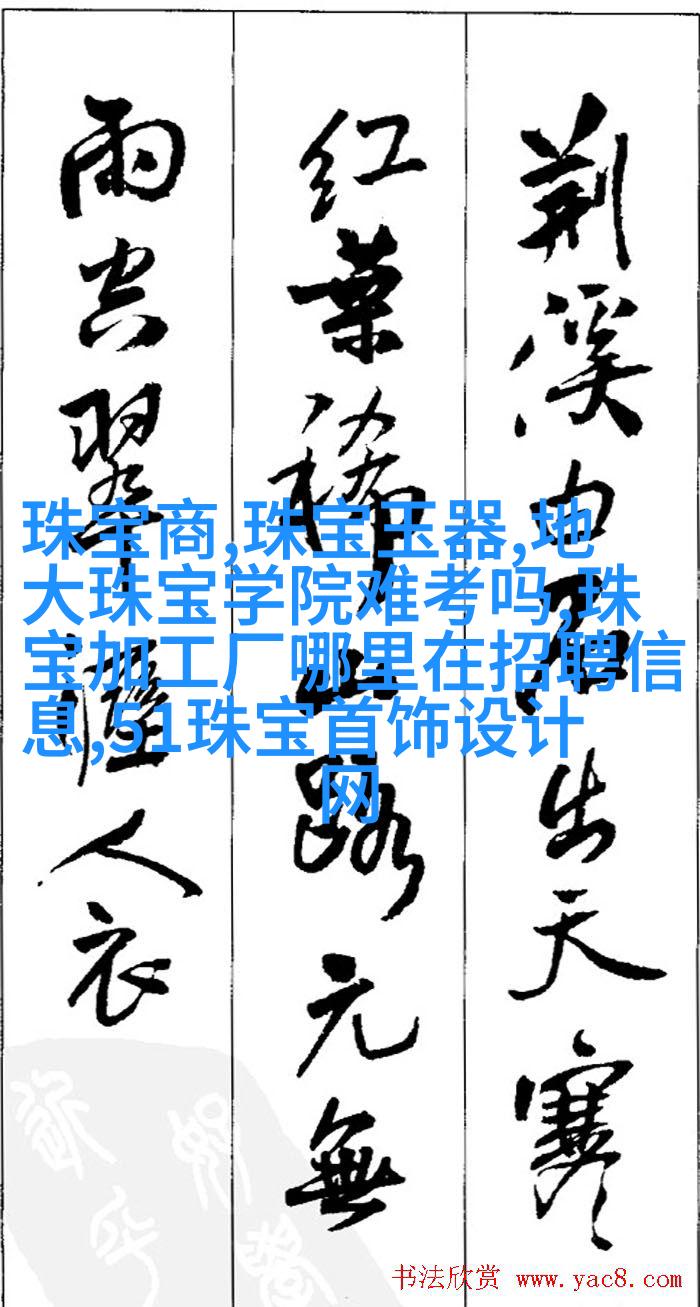 荆溪白石出天寒
红葉稀山路元無
雨空翠濕人衣
珠宝商,珠宝玉器,地
大珠宝学院难考吗,珠
宝加工厂哪里在招聘信
息,51珠宝首饰设计
网
书法欣赏 www.yac8.com